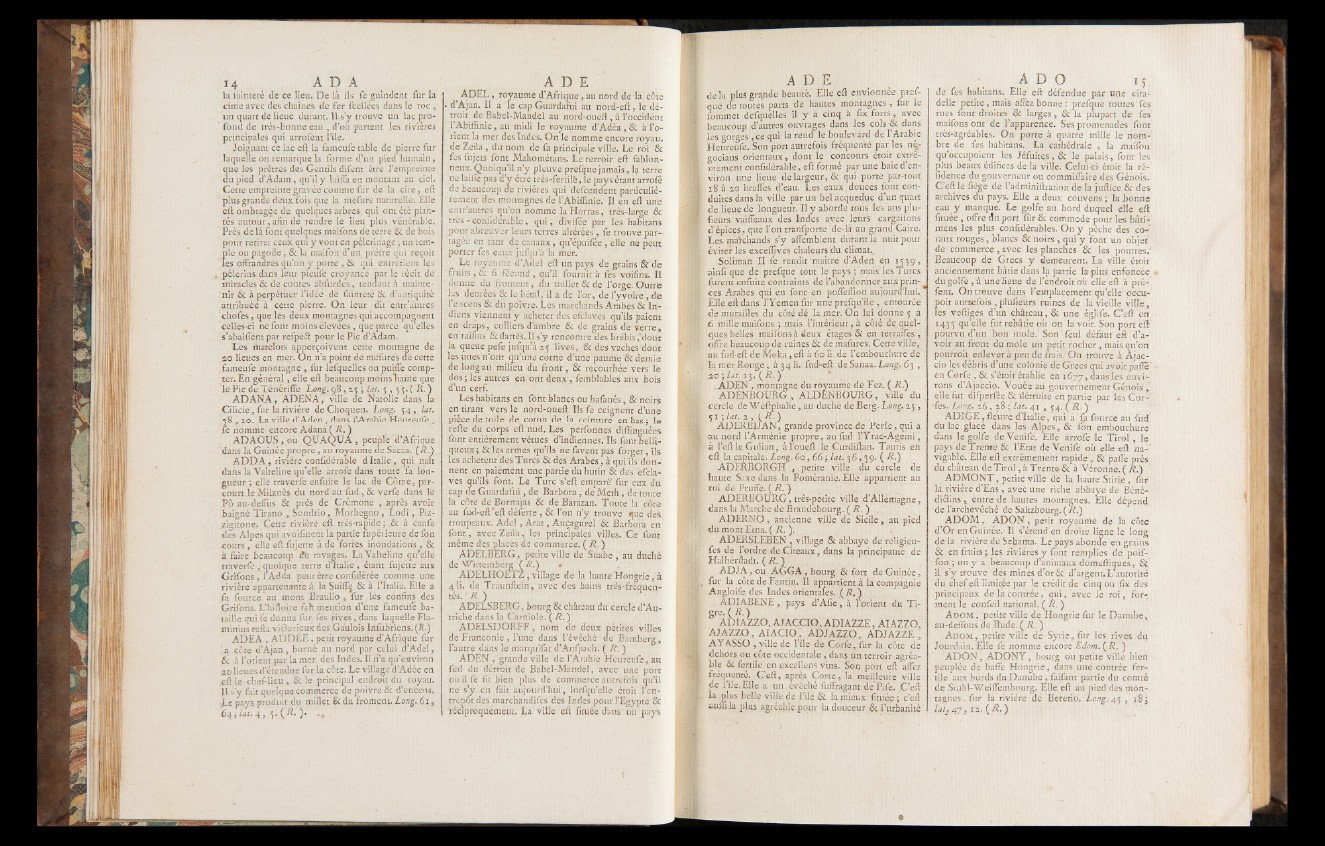 14 A D A
la sainteté de ce lieu. De là ils se guindent sur la
cime avec des chaînes de fer scellées dans le roc,
un quart de lieue durant. Il s'y trouve un lac pro-
fond de très-bonne eau, d'où partent les rivières
principales qui arrosent l'île.
Joignant ce lac est la fameuse table de pierre sur
laquelle on remarque la forme d'un pied humain,
que les prêtres des Gentils disent être l'empreinte
du pied d'Adam, qu'il y laissa en montant au ciel.
Cette empreinte gravée comme sur de la cire, est
plus grande deux fois que la mesure naturelle. Elle
est ombragée de quelques arbres qui ont été plan-
tés autour, afin de rendre le lieu plus vénérable.
Près de là sont quelques maisons de terre & de bois
pour retirer ceux qui y vont en pélerinage; un tem-
ple ou pagode, & la maison d'un prêtre qui reçoit
les offrandres qu'on y porte, & qui entretient les
pélerins dans leur pieuse croyance par le récit de
miracles & de contes absurdes, tendant à mainte-
nir & à perpétuer l'idée de sainteté & d'antiquité
attribuée à cette pierre. On leur dit entr'autres
choses, que les deux montagnes qui accompagnent
celles-ci ne sont moins élevées, que parce qu'elles
s'abaissent par respect pour le Pic d'Adam.
Les matelots apperçoivent cette montagne de
20 lieues en mer. On n'a point de mesures de cette
fameuse montagne, sur lesquelles on puisse comp-
ter. En général, elle est beaucoup moins haute que
le Pic de Ténériffe. Long. 98, 25; lat. 5, 55. (R.)
ADANA, ADENA, ville de Natolie dans la
Cilicie, sur la rivière de Choquen. Long. 54, lat.
38, 10. La ville d'Aden, dans l'Arabie Heureuse,
se nomme encore Adana. (R.)
ADAOUS, ou QUAQUA, peuple d'Afrique
dans la Guinée propre, au royaume de Sacca. (R.)
ADDA, rivière considérable d'Italie, qui naît
dans la Valteline qu'elle arrose dans toute sa lon-
gueur; elle traverse ensuite le lac de Côme, par-
court le Milanès du nord au sud, & verse dans le
Pô au-dessus & près de Crémone, après avoir
baigné Tirano, Sondrio, Morbegno, Lodi, Piz-
zigitone. Cette rivière est très-rapide; & à cause
des Alpes qui avoisinent la partie supérieure de son
cours, elle est sujette à de fortes inondations, &
à faire beaucoup de ravages. La Valteline qu'elle
traverse, quoique terre d'Italie, étant sujette aux
Grisons, l'Adda peut être considérée comme une
rivière appartenante à la Suisse & à l'Italie. Elle a
sa source au mont Braulio, sur les confins des
Grisons. L'histoire fait mention d'une fameuse ba-
taille qui se donna sur ses rives, dans laquelle Fla-
minius resta victorieux des Gaulois Insubriens. (R.)
ADEA, ADDÉE, petit royaume d'Afrique sur
la côte d'Ajan, borné au nord par celui d'Adel,
& à l'orient par la mer des Indes. Il n'a qu'environ
20 lieues d'étendue sur la côte. Le village d'Adée en
est le chef-lieu, & le principal endroit du royau.
Il s'y fait quelque commerce de poivre & d'encens.
Le pays produit du millet & du froment. Long. 61,
64; lat. 4, 5. (R.)
A D E
ADEL, royaume d'Afrique, au nord de la côte
d'Ajan. Il a le cap Guardafui au nord-est, le dé-
troit de Babel-Mandel au nord-ouest, à l'occident
l'Abissinie, au midi le royaume d'Adéa, & à l'o-
rient la mer des Indes. On le nomme encore royau.
de Zeila, du nom de sa principale ville. Le roi &
ses sujets sont Mahométans. Le terroir est sablon-
neux. Quoiqu'il n'y pleuve presque jamais, la terre
ne laisse pas d'y être très-fertile, le pays étant arrosé
de beaucoup de rivières qui descendent particuliè-
rement des montagnes de l'Abissinie. Il en est une
entr'autres qu'on nomme la Horras, très-large &
très-considérable, qui, divisée par les habitans
pour abreuver leurs terres altérées, se trouve par-
tagée en tant de canaux, qu'épuisée, elle ne peut
porter ses eaux jusqu'à la mer.
Le royaume d'Adel est un pays de grains & de
fruits, & si fécond, qu'il fournit à ses voisins. Il
donne du froment, du millet & de l'orge. Outre
les denrées & le bétail, il a de l'or, de l'yvoire, de
l'encens & du poivre. Les marchands Arabes & In-
diens viennent y acheter des esclaves qu'ils paient
en draps, colliers d'ambre & de grains de verre,
en raisins & dattes. Il s'y rencontre des brebis, dont
la queue pèse jusqu'à 25 livres, & des vaches dont
les unes n'ont qu'une corne d'une paume & demie
de long au milieu du front, & recourbée vers le
dos; les autres en ont deux, semblables aux bois
d'un cerf.
Les habitans en sont blancs ou basanés, & noirs
en tirant vers le nord-ouest. Ils se ceignent d'une
pièce de toile de coton de la ceinture en bas; le
reste du corps est nud. Les personnes distinguées
sont entièrement vêtues d'indiennes. Ils sont belli-
queux; & les armes qu'ils ne savent pas forger, ils
les achetent des Turcs & des Arabes, à qui ils don-
nent en paiement une partie du butin & des escla-
ves qu'ils font. Le Turc s'est emparé sur eux du
cap de Guardafui, de Barbora, de Meth, de toute
la côte de Bornajas & de Barazan. Toute la côte
au sud-est est déserte, & l'on n'y trouve que des
troupeaux. Adel, Arat, Auçagurel & Barbora en
sont, avec Zeila, les principales villes. Ce sont
même des places de commerce. (R.)
ADELBERG, petite ville de Suabe, au duché
de Wirtemberg. (R.)
ADELHOETZ, village de la haute Hongrie, à
4 li. de Traunstein, avec des bains très-fréquen-
tés. (R.)
ADELSBERG, bourg & château du cercle d'Au-
triche dans la Carniole. (R.)
ADELSDORFF, nom de deux petites villes
de Franconie, l'une dans l'évêché de Bamberg,
l'autre dans le marquisat d'Anspach. (R.)
ADEN, grande ville de l'Arabie Heureuse, au
sud du détroit de Babel-Mandel, avec une port
où il se fit bien plus de commerce autrefois qu'il
ne s'y en fait aujourd'hui, lorsqu'elle étoit l'en-
trepôt des marchandises des Indes pour l'Egypte &
réciproquement. La ville est située dans un pays
A D E
de la plus grande beauté. Elle est envionnée pres-
que de toutes parts de hautes montagnes, sur le
sommet desquelles il y a cinq à six forts, avec
beaucoup d'autres ouvrages dans les cols & dans
les gorges, ce qui la rend le boulevard de l'Arabie
Heureuse. Son port autrefois fréquenté par les né-
gocians orientaux, dont le concours étoit extrê-
mement considérable, est formé par une baie d'en-
viron une lieue de largeur, & qui porte par-tout
18 à 20 brasses d'eau. Les eaux douces sont con-
duites dans la ville par un bel acqueduc d'un quart
de lieue de longueur. Il y aborde tous les ans plu-
sieurs vaisseaux des Indes avec leurs cargaisons
d'épices, que l'on transporte de-là au grand Caire.
Les marchands s'y assemblent durant la nuit pour
éviter les excessives chaleurs du climat.
Soliman II se rendit maître d'Aden en 1539,
ainsi que de presque tout le pays; mais les Turcs
furent ensuite contraints de l'abandonner aux prin-
ces Arabes qui en sont en possession aujourd'hui.
Elle est dans l'Yemen sur une presqu'île, entourée
de murailles du côté de la mer. On lui donne 5 à
6 mille maisons; mais l'intérieur, à côté de quel-
ques belles maisons à deux étages & en terrasses,
offre beaucoup de ruines & de masures. Cette ville,
au sud-est de Moka, est à 60 li. de l'embouchure de
la mer Rouge, à 34 li. sud-est de Sanaa. Long. 63,
20; lat. 13. (R.)
ADEN, montagne du royaume de Fez. (R.)
ADENBOURG, ALDENBOURG, ville du
cercle de Westphalie, au duché de Berg. Long. 25,
52; lat. 2. (R.)
ADERBIJAN, grande province de Perse, qui a
au nord l'Arménie propre, au sud l'Yrac-Agemi,
à l'est le Gulian, à l'ouest le Curdistan. Tauris en
est la capitale. Long. 60, 66; lat. 36, 39. (R.)
ADERBORGH, petite ville du cercle de
haute Saxe dans la Poméranie. Elle appartient au
roi de Prusse. (R.)
ADERBOURG, très-petite ville d'Allemagne,
dans la Marche de Brandebourg. (R.)
ADERNO, ancienne ville de Sicile, au pied
du mont Etna. (R.)
ADERSLEBEN, village & abbaye de religieu-
ses de l'ordre de Citeaux, dans la principauté de
Halberstadt. (R.)
ADJA, ou AGGA, bourg & fort de Guinée,
sur la côte de Fantin. Il appartient à la compagnie
Angloise des Indes orientales. (R.)
ADIABENE, pays d'Asie, à l'orient du Ti-
gre. (R.)
ADIAZZO, AJACCIO, ADIAZZE, AIAZZO,
AJAZZO, AIACIO, ADJAZZO, ADJAZZE,
AYASSO, ville de l'île de Corse, sur la côte de
dehors ou côte occidentale, dans un terroir agréa-
ble & fertile en excellens vins. Son port est assez
fréquenté. C'est, après Corte, la meilleure ville
de l'île. Elle a un évêché suffragant de Pise. C'est
la plus belle ville de l'île & la mieux située; c'est
aussi la plus agréable pour la douceur & l'urbanité
A D O 15
de ses habitans. Elle est défendue par une cita-
delle petite, mais assez bonne: presque toutes ses
rues sont droites & larges, & la plupart de ses
maisons ont de l'apparence. Ses promenades sont
très-agréables. On porte à quatre mille le nom-
bre de ses habitans. La cathédrale, la maison
qu'occupoient les Jésuites, & le palais, sont les
plus beaux édifices de la ville. Celui-ci étoit la ré-
sidence du gouverneur ou commissaire des Génois.
C'est le siége de l'administration de la justice & des
archives du pays. Elle a deux couvens; la bonne
eau y manque. Le golfe au bord duquel elle est
située, offre un port sûr & commode pour les bâti-
mens les plus considérables. On y pêche des co-
raux rouges, blancs & noirs, qui y font un objet
de commerce, avec les planches & les poutres.
Beaucoup de Grecs y demeurent. La ville étoit
anciennement bâtie dans la partie la plus enfoncée
du golfe, à une lieue de l'endroit où elle est à pré-
sent. On trouve dans l'emplacement qu'elle occu-
poit autrefois, plusieurs ruines de la vieille ville,
les vestiges d'un château, & une église. C'est en
1435 qu'elle fut rebâtie où on la voit. Son port est
pourvu d'un bon mole. Son seul défaut est d'a-
voir au front du mole un petit rocher, mais qu'on
pourroit enlever à peu de frais. On trouve à Ajac-
cio les débris d'une colonie de Grecs qui avoit passé
en Corse, & s'étoit établie en 1677, dans les envi-
rons d'Ajaccio. Vouée au gouvernement Génois,
elle fut dispersée & détruite en partie par les Cor-
ses. Long. 26, 28; lat. 41, 54. (R.)
ADIGE, fleuve d'Italie, qui a sa source au sud
du lac glacé dans les Alpes, & son embouchure
dans le golfe de Venise. Elle arrose le Tirol, le
pays de Trente & l'Etat de Venise où elle est na-
vigable. Elle est extrêmement rapide, & passe près
du château de Tirol, à Trente & à Véronne. (R.)
ADMONT, petite ville de la haute Stirie, sur
la rivière d'Ens, avec une riche abbaye de Béné-
dictins, entre de hautes montagnes. Elle dépend
de l'archevêché de Saltzbourg. (R.)
ADOM, ADON, petit royaume de la côte
d'Or en Guinée. Il s'étend en droite ligne le long
de la rivière de Schama. Le pays abonde en grains
& en fruits; les rivières y sont remplies de pois-
son; on y a beaucoup d'animaux domestiques, &
il s'y trouve des mines d'or & d'argent. L'autorité
du chef est limitée par le crédit de cinq ou six des
principaux de la contrée, qui, avec le roi, for-
ment le conseil national. (R.)
ADOM, petite ville de Hongrie sur le Danube,
au-dessous de Bude. (R.)
ADOM, petite ville de Syrie, sur les rives du
Jourdain. Elle se nomme encore Edom. (R.)
ADON, ADONY, bourg ou petite ville bien
peuplée de basse Hongrie, dans une contrée fer-
tile aux bords du Danube, faisant partie du comté
de Stuhl-Weissembourg. Elle est au pied des mon-
tagnes, sur la rivière de Bereno. Long. 45, 18;
lat. 47, 12. (R.)